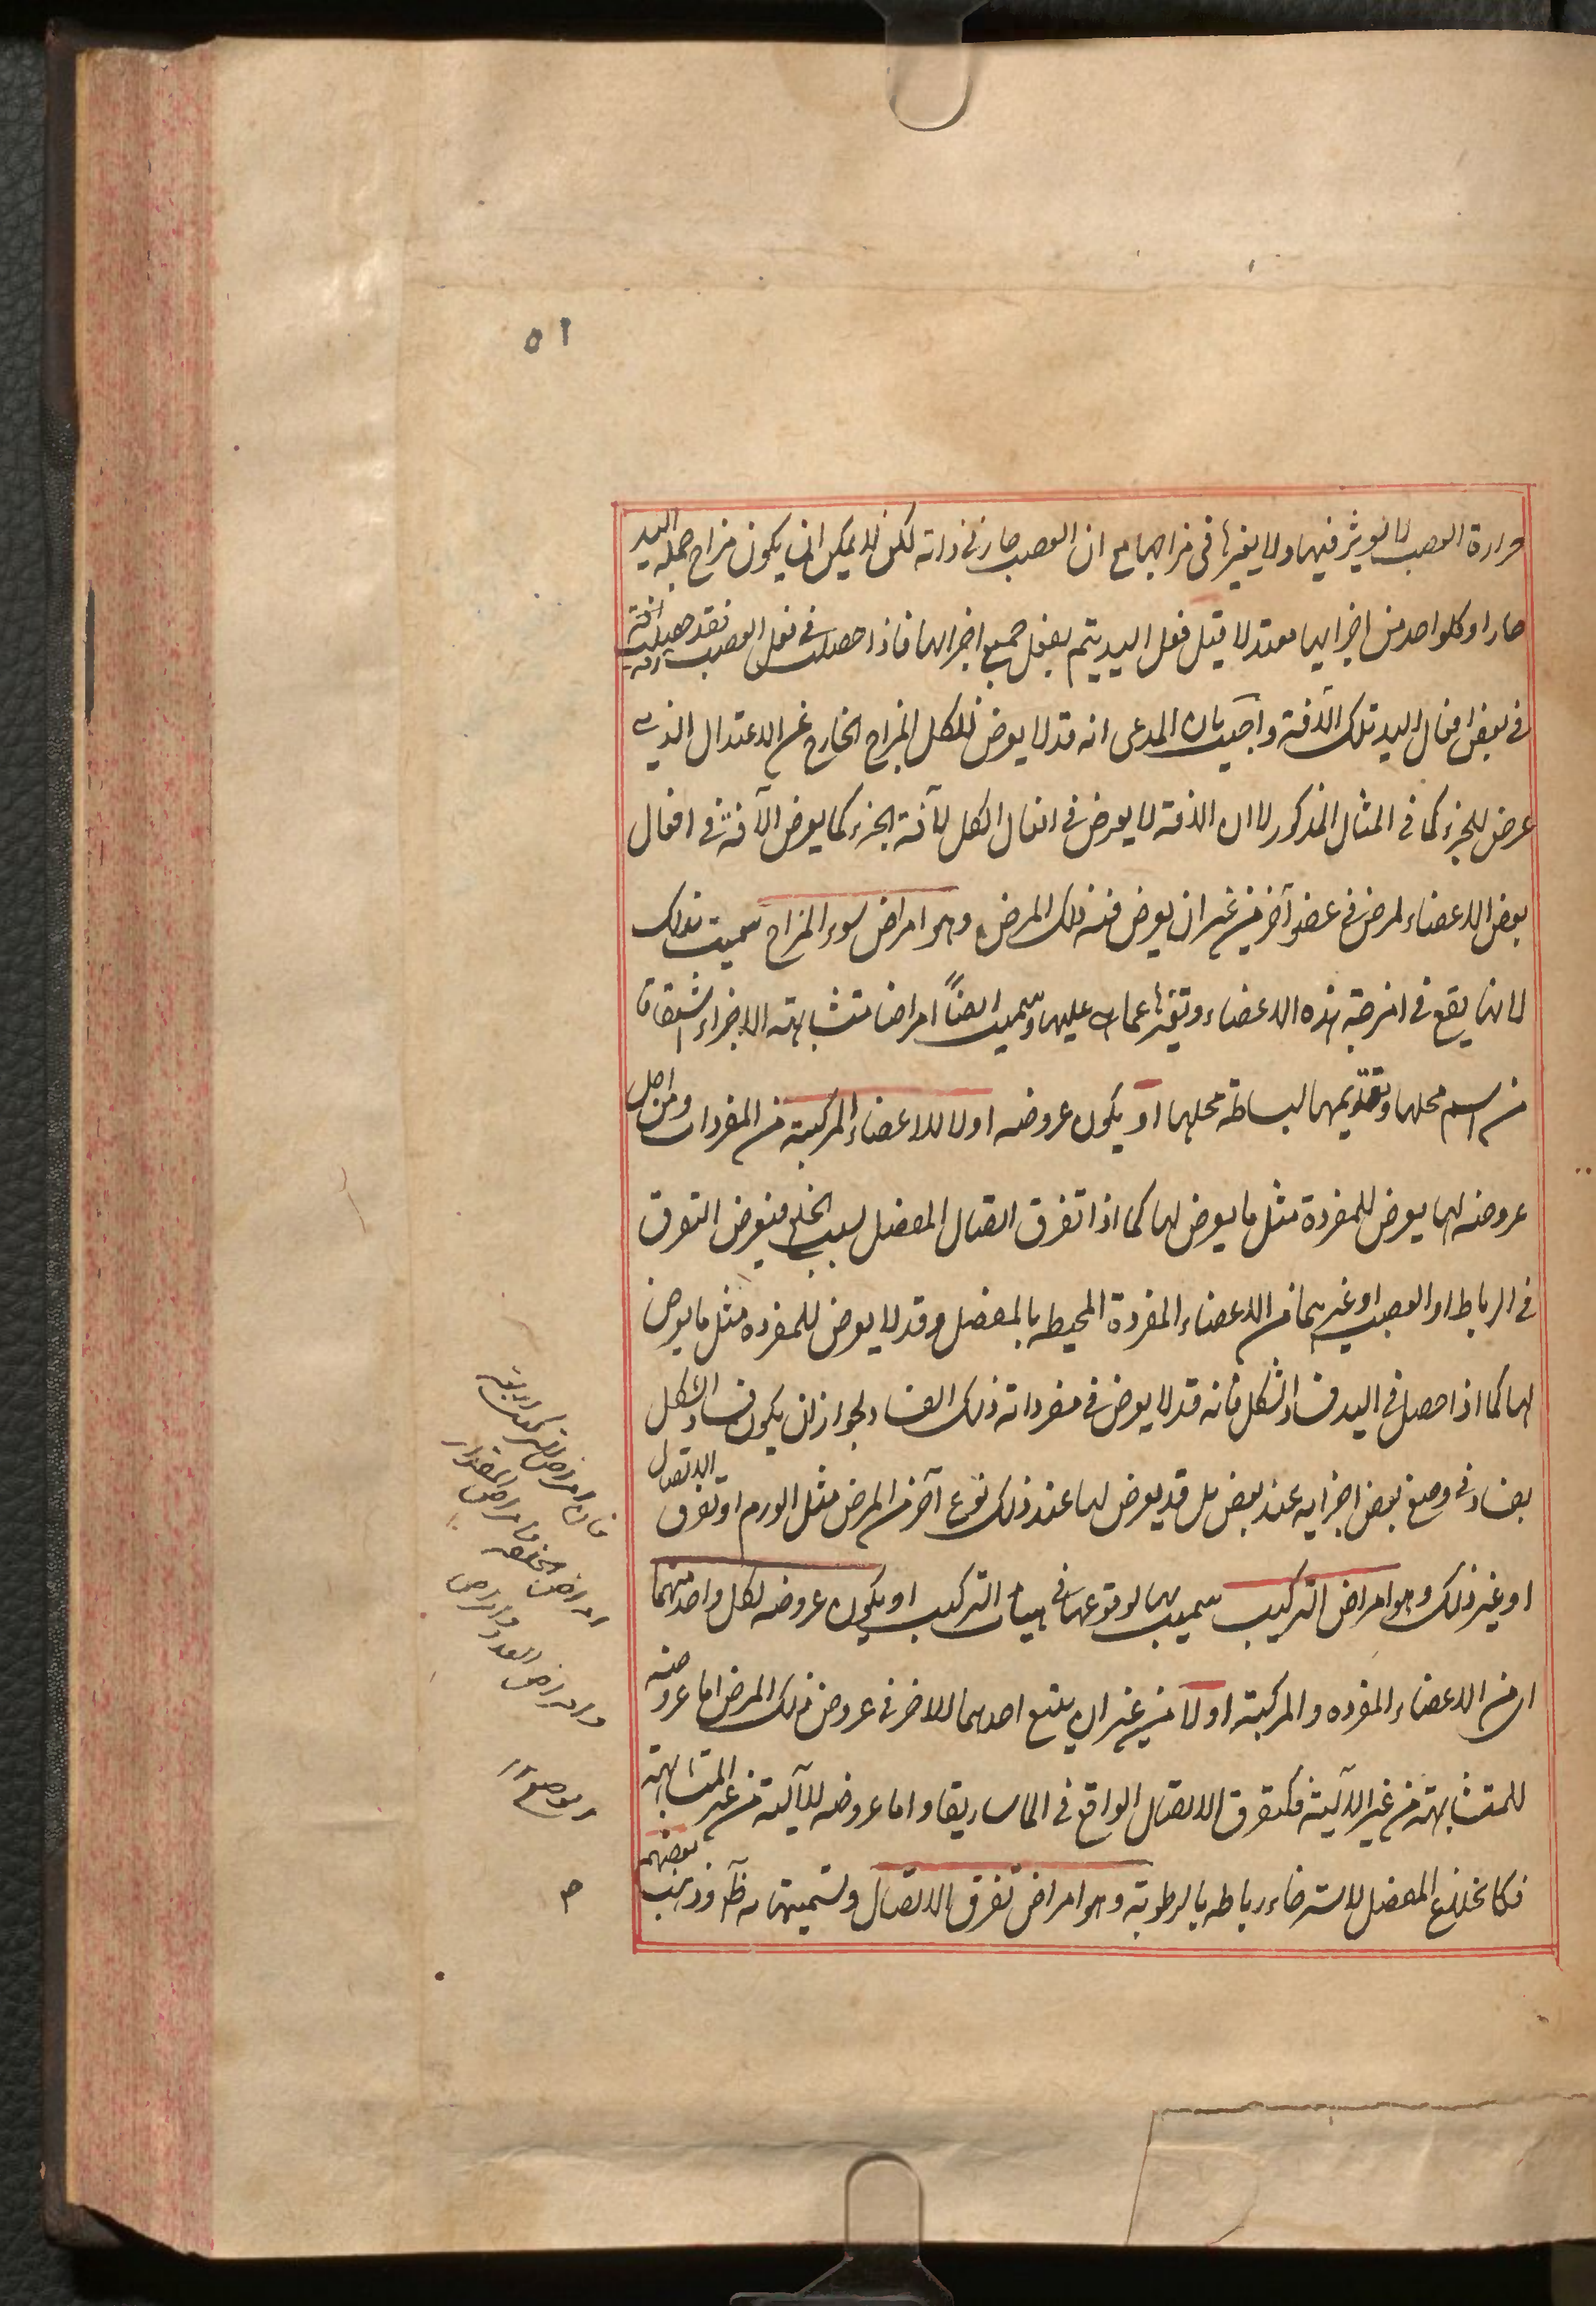 ٥١
حرارة العصب لا يوثر فيها ولا يغيرها فى مزاجها مع ان العصب حار فى ذاته لكن لا يمكن ان يكون مزاج جملة اليد
حارا وكل واحد من اجزايها معتدلا قيل فعل اليد يتم بفعل جميع اجزايها فاذا حصلت فى فعل العصب آفة فقد حصلت
فى بعض افعال اليد تلك الآفة واجيب بان المدعى انه قد لا يعرض للكل المزاج الخارج عن الاعتدال الذى
عرض للجزء كما فى المثال المذكور لا ان الآفة لا يعرض فى افعال الكل لآفة الجزء كما يعرض الآفة فى افعال
بعض الاعضاء لمرض فى عضو آخر من غير ان يعرض فيه ذلك المرض وهو امراض سوء المزاج سميت بذلك
لانها يقع فى امزجة هذه الاعضاء وتغيرها عما هى عليها وسميت ايضاً امراضا متشابهة الاجزاء اشتقاقا
من اسم محلها وتقديمها لبساطة محلها او يكون عروضه اولا للاعضاء المركبة من المفردات ومن اجل
عروضه لها يعرض للمفردة مثل ما يعرض لها كما اذا تفرق اتصال المفصل بسبب الخلع فيعرض التفرق
فى الرباط او العصب او غيرهما من الاعضاء المفردة المحيطه بالمفصل وقد لا يعرض للمفرده مثل ما يعرض
لها كما اذا حصل فى اليد فساد الشكل فانه قد لا يعرض فى مفرداته ذلك الفساد لجواز ان يكون فساد الشكل
بفساد فى وضع بعض اجزايه عند بعض بل قد يعرض لها عند ذلك نوع آخر من المرض مثل الورم او تفرق الاتصال
او غير ذلك وهو امراض التركيب سميت بها لوقوعها فى هيات التركيب او يكون عروضه لكل واحد منهما
اى من الاعضاء المفرده والمركبة اولا من غير ان يتبع احدهما للاخر فى عروض ذلك المرض اما عروضه
للمتشابهة من غير الآلية فكتفرق الاتصال الواقع فى الماساريقا واما عروضه للآلية من غير المتشابهة
فكانخلاع المفصل لاسترخاء رباطه بالرطوبة وهو امراض تفرق الاتصال وتسميتها به ظاهر وذهب بعضهم
فان امراض التركيب اربعة
امراض الخلقه وامراض المقدار
وامراض العدد وامراض
الموضع